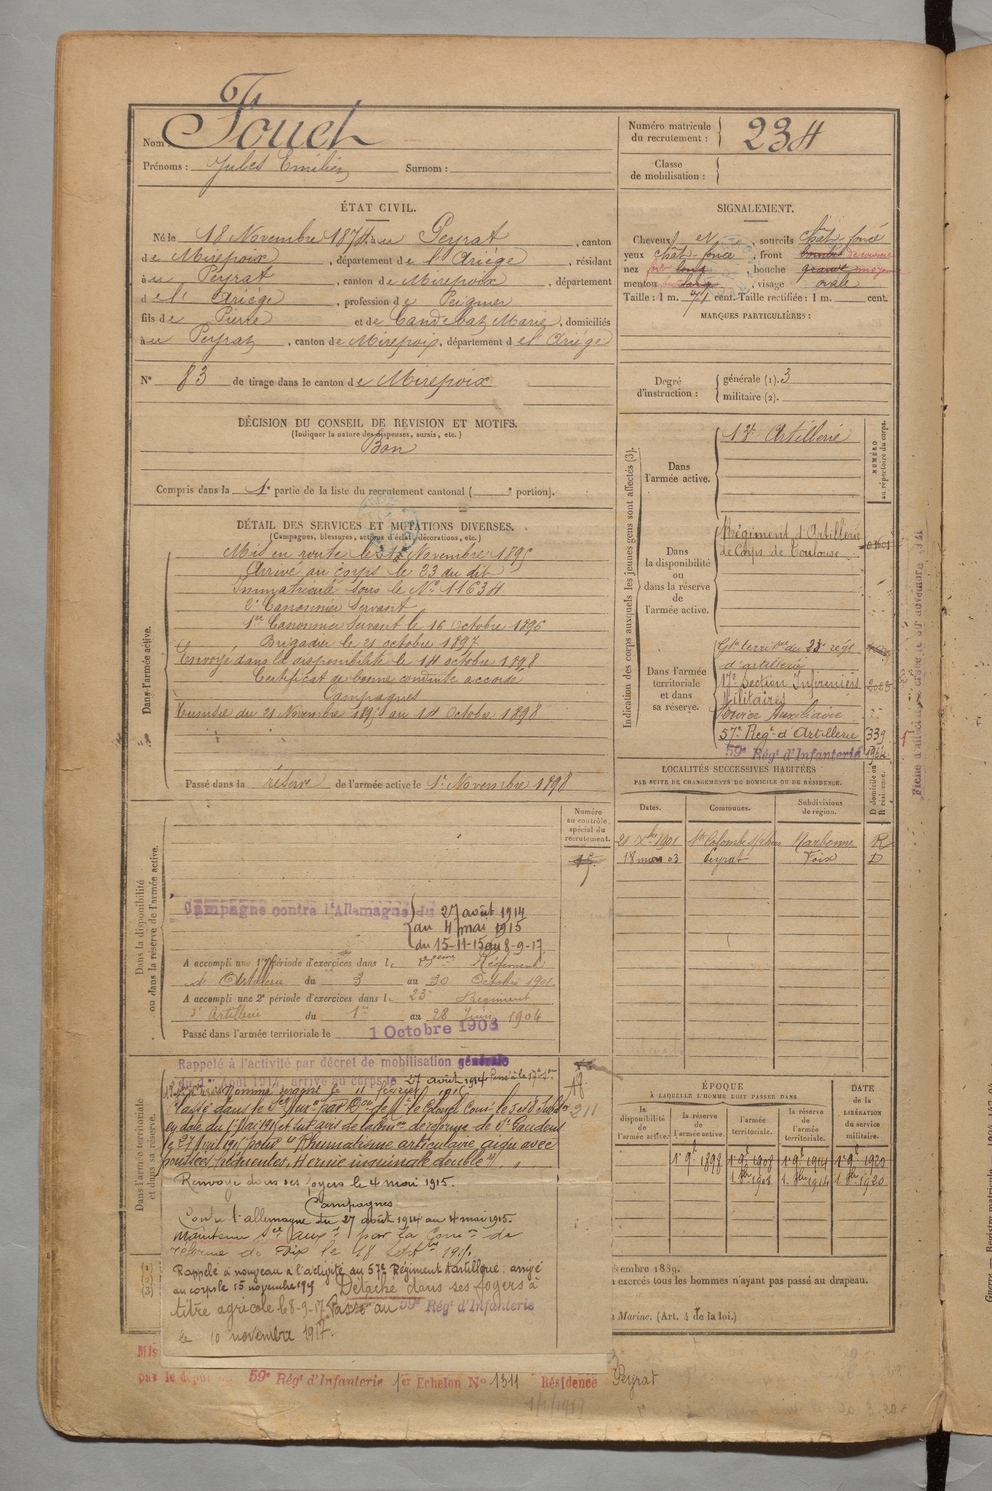 Nom Fouch
Prénoms : Jules Emilien Surnom :
Numéro matricule du recrutement : 234
Classe de mobilisation :
ÉTAT CIVIL.
Né le 18 Novembre 1874 à u Peyrat, canton
de Mirepoix, département de l'Ariège, résidant
à u Peyrat, canton de Mirepoix, département
d e l' Ariège, profession de Peignier
fils de Pierre et de Candebat Marie, domiciliés
à u Peyrat, canton de Mirepoix, département d e l'Ariège
N° 83 de tirage dans le canton de Mirepoix
SIGNALEMENT.
Cheveux N, sourcils chât. foncé
yeux chât. foncé, front
nez, bouche
menton, visage ovale
Taille : 1 m. 71 cent. Taille rectifiée : 1 m. cent.
MARQUES PARTICULIÈRES :
Degré d'instruction : générale (1). 3
militaire (2).
DÉCISION DU CONSEIL DE REVISION ET MOTIFS.
(Indiquer la nature des dispenses, sursis, etc.)
Bon
Compris dans la 1e partie de la liste du recrutement cantonal ( e portion).
DÉTAIL DES SERVICES ET MUTATIONS DIVERSES.
(Campagnes, blessures, actions d'éclat, décorations, etc.)
Dans l'armée active.
Mis en route le Novembre 1895
Arrivé au corps le 23 du dit
Immatriculé sous le N° 11634
2e Canonnier Servant
1er Canonnier Servant le 16 Octobre 1896
Brigadier le 21 octobre 1897
Envoyé dans la disponibilité le 14 octobre 1898
Certificat de bonne conduite accordé
Campagnes
Tunisie du 21 Novembre 1895 au 14 Octobre 1898
Passé dans la réserve de l'armée active le 1er Novembre 1898
Indication des corps auxquels les jeunes gens sont affectés (3).
NUMÉRO au répertoire du corps.
Dans l'armée active.
12e Artillerie
Dans la disponibilité ou dans la réserve de l'armée active.
Régiment d'Artillerie
de Corps de Toulouse
Dans l'armée territoriale et dans sa réserve.
Gpe territal du 23e régt
d'artillerie
17e Section Infirmiers
Militaires
Service Auxiliaire
57e Régt d'Artillerie 339
59e Régt d'Infanterie
LOCALITÉS SUCCESSIVES HABITÉES
PAR SUITE DE CHANGEMENTS DE DOMICILE OU DE RÉSIDENCE.
Dates. Communes. Subdivisions de région. D domicile ou R résidence.
21 Xbre 1901 Ste Colombe s/l'Hers Narbonne R
18 mars 03 Peyrat Foix D
Numéro au contrôle spécial du recrutement.
Dans la disponibilité ou dans la réserve de l'armée active.
Campagne contre l'Allemagne du 27 août 1914
au 4 mai 1915
du 15-11-15 au 8-9-17
A accompli une 1re période d'exercices dans le 23ème Régiment
d'Artillerie du 3 au 30 Octobre 1901
A accompli une 2e période d'exercices dans le 23e Régiment
d'Artillerie du 1er au 28 Juin 1904
Passé dans l'armée territoriale le 1 Octobre 1908
Dans l'armée territoriale et dans sa réserve.
Rappelé à l'activité par décret de mobilisation générale
du 1er Août 1914, arrivé au corps le 27 août 1914
le 11 février 1915
Passé dans le Sce Auxre par Don de Mr le Colonel Comt le Subdon
en date du 1er Mai 1915 et sur avis de la Con de réforme de St Gaudens
du 27 Avril 1915 pour "Rhumatisme articulaire aigu avec
poussées fréquentes, Hernie inguinale double"
Renvoyé dans ses foyers le 4 mai 1915.
Campagnes
Contre l'allemagne du 27 août 1914 au 4 mai 1915.
Maintenu Sce auxre par la Comon de
réforme de Foix le 18 Septbre 1915.
Rappelé à nouveau à l'activité au 57e Régiment d'artillerie : arrivé
au corps le 15 novembre 1915 Détaché dans ses foyers à
titre agricole le 8-9-17. Passé au 59e Régt d'Infanterie
le 10 novembre 1917.
211
ÉPOQUE
À LAQUELLE L'HOMME DOIT PASSER DANS
la disponibilité de l'armée active. la réserve de l'armée active. l'armée territoriale. la réserve de l'armée territoriale. DATE de la LIBÉRATION du service militaire.
1er 9bre 1898 1er 9bre 1908 1er 9bre 1914 1er 9bre 1920
1. 8bre 1908 1. 8bre 1914 1. 8bre 1920
embre 1889.
exercés tous les hommes n'ayant pas passé au drapeau.
Marine. (Art. 4 de la loi.)
Mis
par le dépôt du 59e Régt d'Infanterie 1er Echelon No 1311 Résidence Peyrat